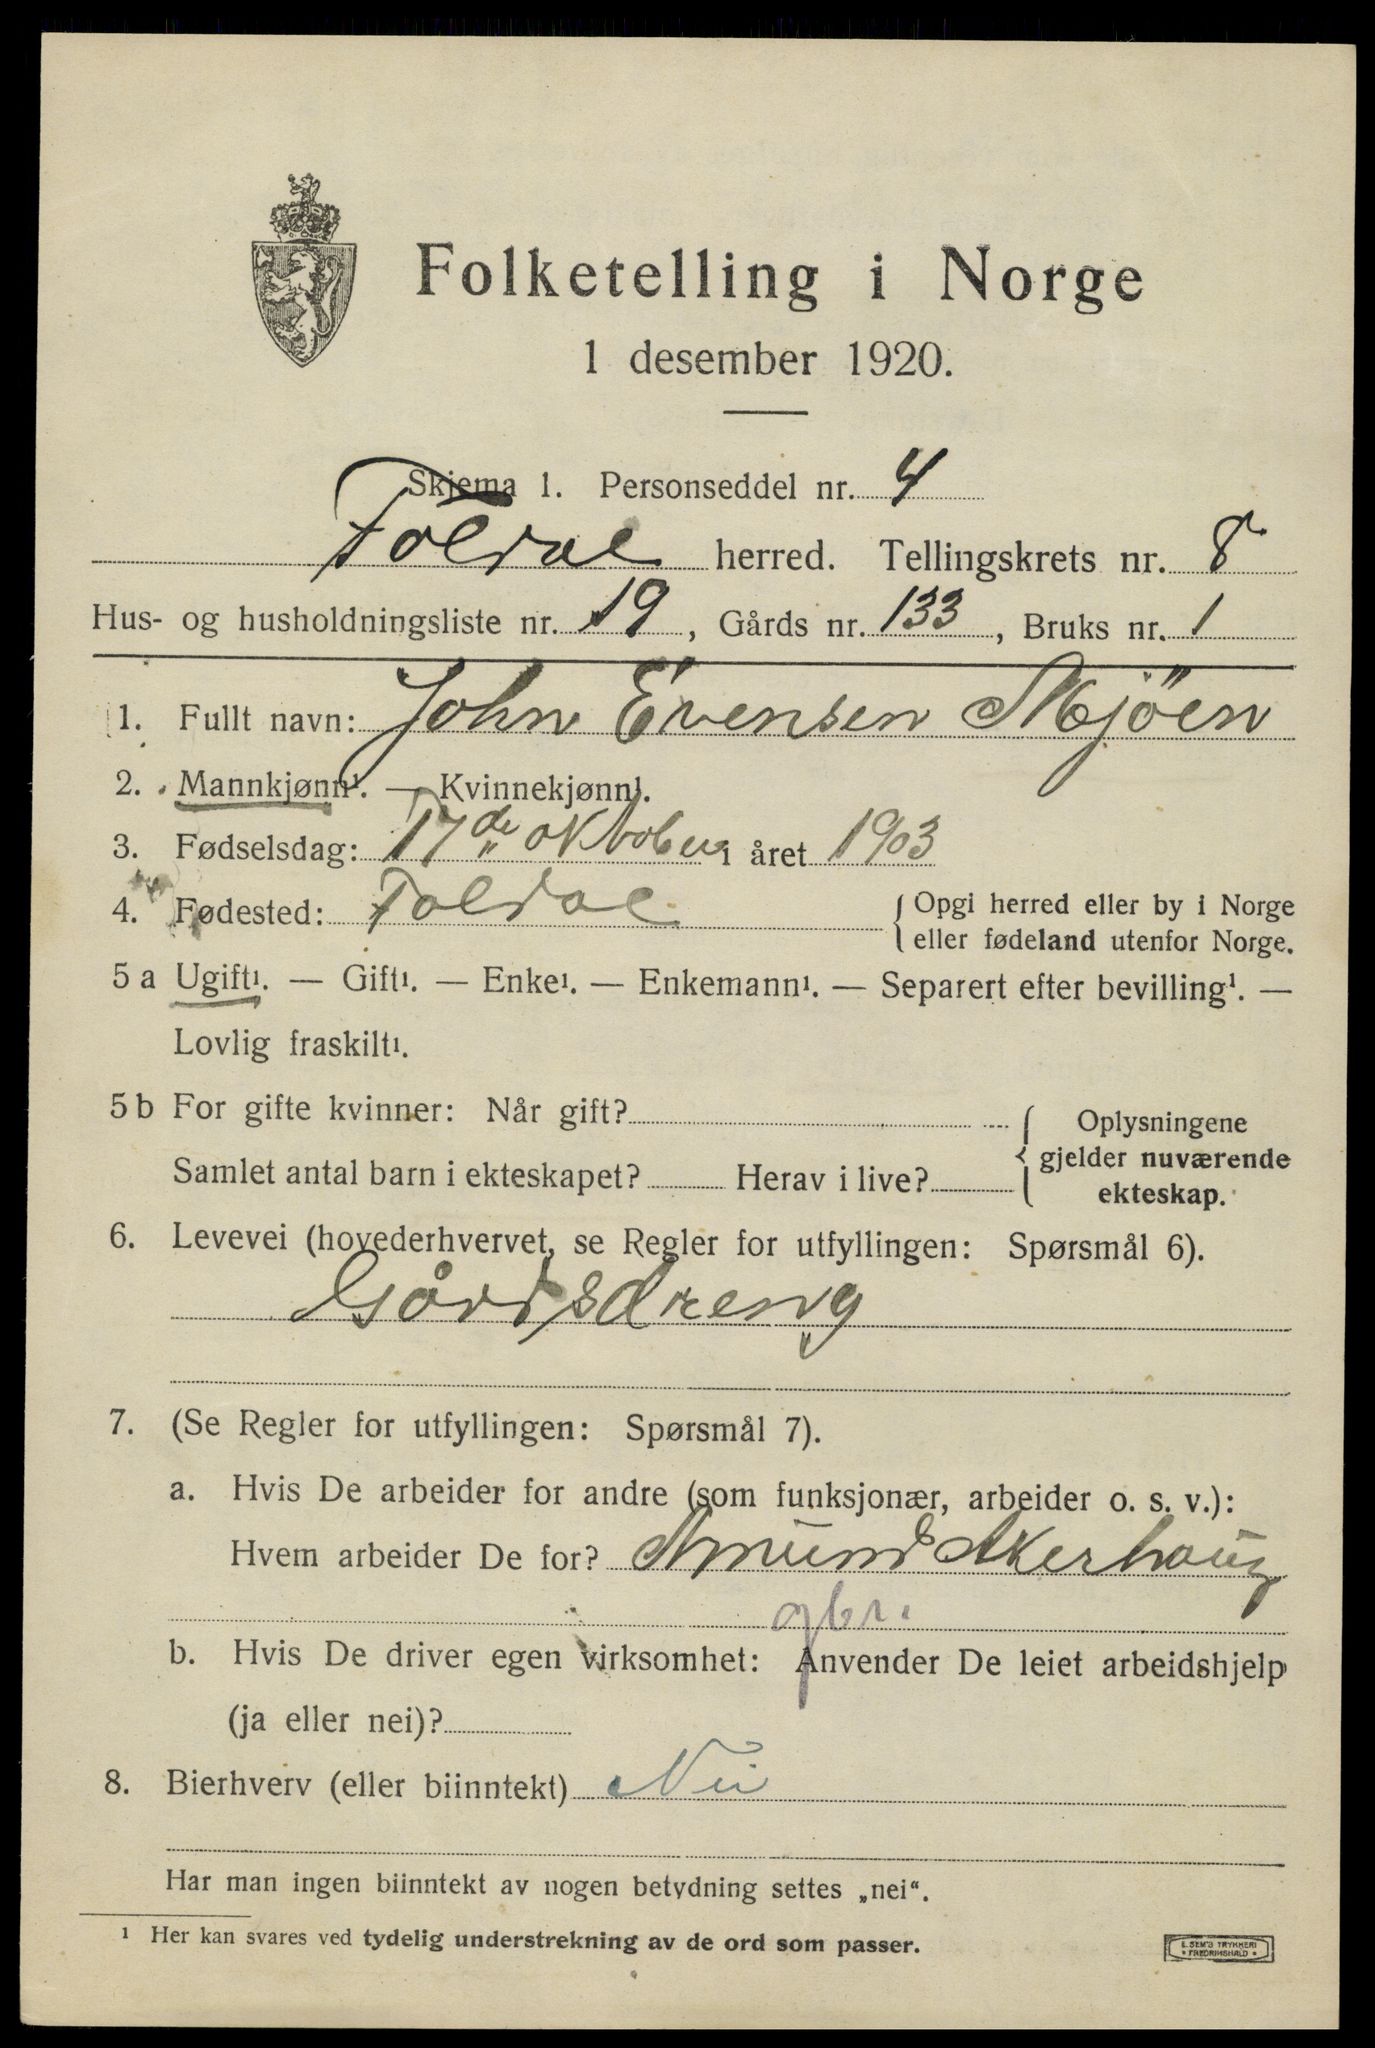 Folketelling i Norge
1 desember 1920.
Skjema 1. Personseddel nr. 4
Foldal herred. Tellingskrets nr. 8
Hus- og husholdningsliste nr. 19, Gårds nr. 133, Bruks nr. 1
1. Fullt navn: John Evensen Mjöen
2. Mannkjønn¹. — Kvinnekjønn¹.
3. Fødselsdag: 17de oktober i året 1903
4. Fødested: Foldal { Opgi herred eller by i Norge
eller fødeland utenfor Norge.
5 a Ugift¹. — Gift¹. — Enke¹. — Enkemann¹. — Separert efter bevilling¹. —
Lovlig fraskilt¹.
5 b For gifte kvinner: Når gift? { Oplysningene
gjelder nuværende
Samlet antal barn i ekteskapet? Herav i live?
ekteskap.
6. Levevei (hovederhvervet, se Regler for utfyllingen: Spørsmål 6).
Gårdsdreng
7. (Se Regler for utfyllingen: Spørsmål 7).
a. Hvis De arbeider for andre (som funksjonær, arbeider o. s. v.):
Hvem arbeider De for? Amund Akerhaug
gbr.
b. Hvis De driver egen virksomhet: Anvender De leiet arbeidshjelp
(ja eller nei)?
8. Bierhverv (eller biinntekt) Nei
Har man ingen biinntekt av nogen betydning settes „nei“.
¹ Her kan svares ved tydelig understrekning av de ord som passer.
E. SEM'S TRYKKERI
* FREDRIKSHALD *